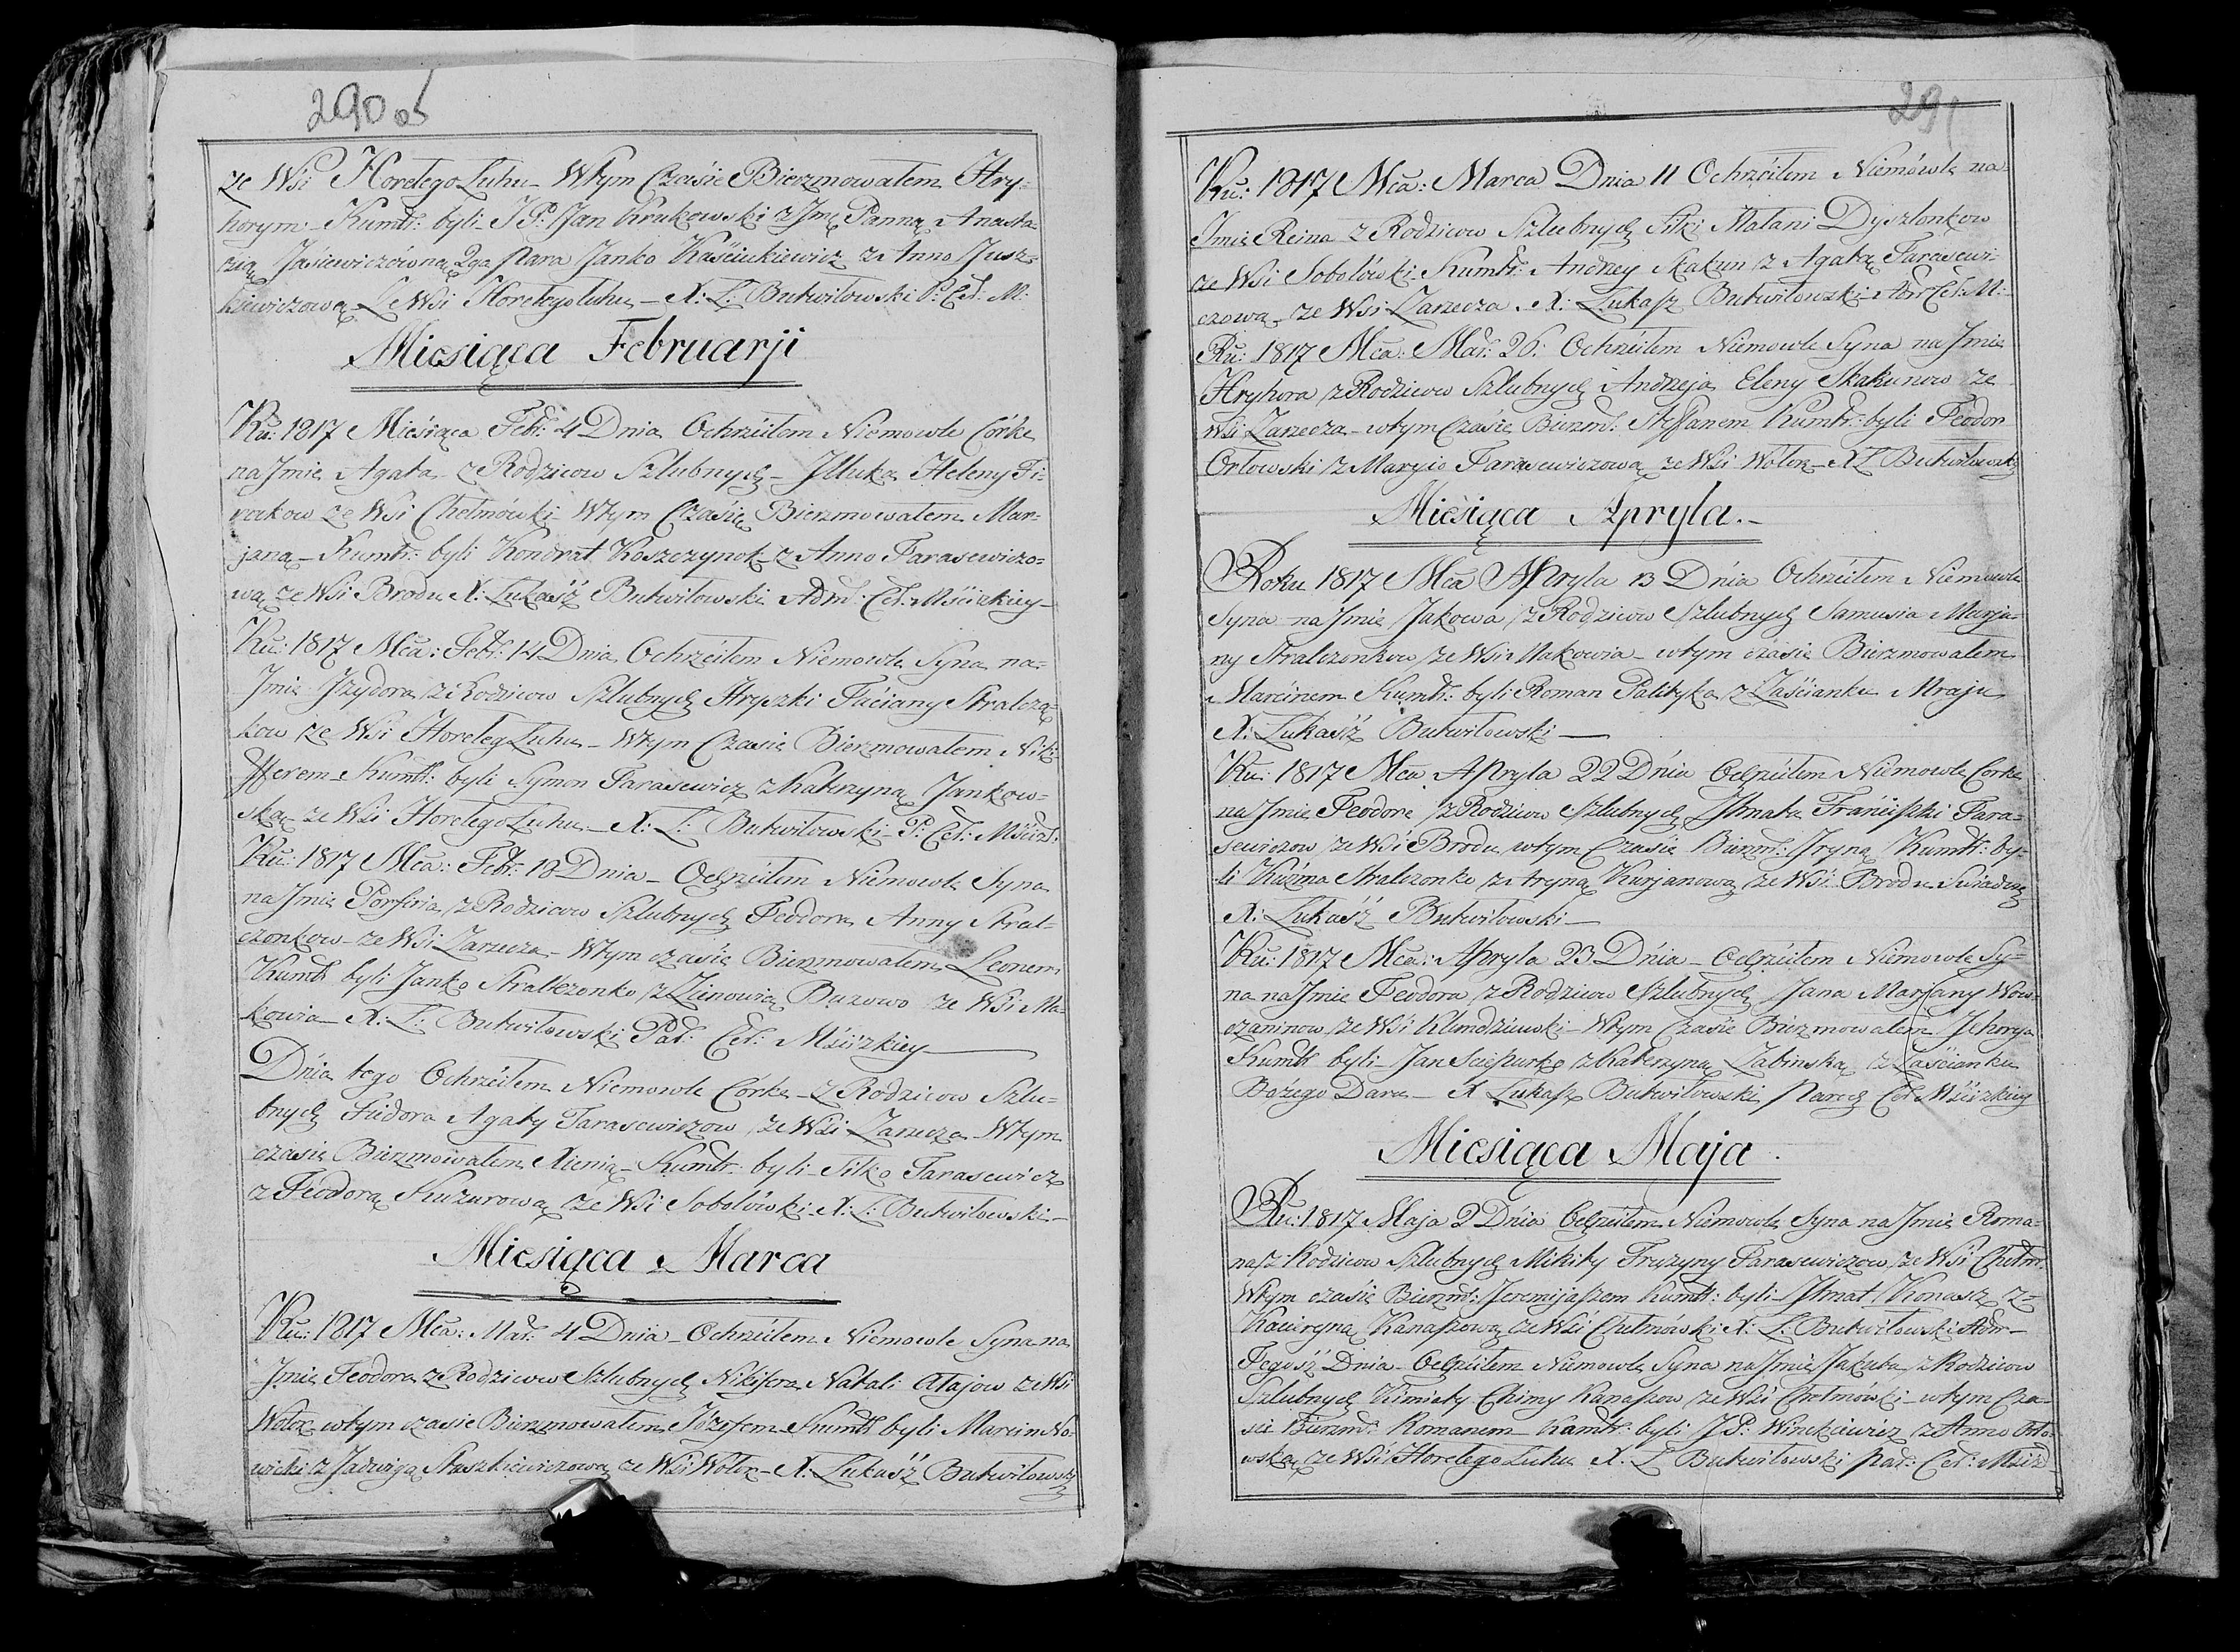 290 об
ze Wsi Horełego Łuhu – Wtym Czásie Bierzmowałem Hry-
horym – Kumtr: byli – J P: Jan Krukowski z Jmę Panną Anasta-
zią Jásiewiczówną 2ga para Janko Kaściukiewicz z Anno Jusz-
kiewiczową ze Wsi Horełego Łuhu – X: Ł: Butwiłowski P: Cer: M:
Miesiąca Februarji
Ru: 1817 Miesiąca Febr: 4 Dnia Ochrzciłem Niemowle Córkę
na Jmie Agata z Rodzicow Szlubnych – Jlluka Heleny Ti-
rakow ze Wsi Chełmówki Wtym Czásie Bierzmowałem Mar-
janą – Kumtr: byli Kondrat Koszczynok z Anno Tarasewiczo-
wą ze Wsi Brodu X: Łukasź Butwiłowski Adm: Cer: Mścizkiey –
Ru: 1817 Mca: Febr: 14 Dnia Ochrzciłem Niemowle Syna na-
Jmie Jzydora z Rodzicow Szlubnych Hryszki Taciany Stralczą-
kow ze Wsi Horełeg Łuhu – Wtym Czasie Bierzmowałem Niki-
fferem – Kumtr: byli Symon Tarasewicz z Katrzyną Jankow-
ską ze Wsi Horełego Łuhu – X: Ł: Butwiłowski – P: Cer: Mścizk:
Ru: 1817 Mca: Febr: 18 Dnia – Ochrzciłem Niemowle Syna
na Jmie Porfiria z Rodzicow Szlubnych Feodora Anny Stral-
czonkow – ze Wsi Zarzecza – Wtym czasie Bierzmowałem Leonem
Kumtr byli Janko Stralczonko z Zienowią Buzowo ze Wsi Ma-
kowia – X: Ł: Butwiłowski Par: Cer: Mścizkiey –
Dnia tego Ochrzciłem Niemowle Córkę – z Rodzicow Szlu-
bnych Fiedora Agaty Tarasewiczow ze Wsi Zarzecza – Wtym
czasie Bierzmowałem Xienią – Kumtr: byli – Siłko Tarasewicz
z Feodorą Kuzurową ze Wsi Sobolówki X: Ł: Butwiłowski –
Miesiąca Marca
Ru: 1817 Mca: Mar: 4 Dnia – Ochrzciłem Niemowle Syna na
Jmie Feodora z Rodzicow Szlubnych Nikifora Natali Atajow ze Wsi
Wołok wtym czasie Bierzmowałem Józefem – Kumtr byli Marcin No-
wicki z Jadwigą Staszkiewiczową ze Wsi Wołok – X: Łukasź Butwiłowski
291
Ru: 1817 Mca: Marca Dnia 11 Ochrzciłem Niemówle na-
Jmie Reina z Rodzicow Szlubnych Siłki Małani Dyszlonkow
ze Wsi Sobolówki Kumtr: Andrzey Skakun z Agatą Tarasewi-
czową – ze Wsi Zarzecza X: Łukasz Butwiłowski Adm Cer: M:
Ru: 1817 Mca: Mar: 26: Ochrzciłem Niemowle Syna na Jmie
Hryhora z Rodzicow Szlubnych Andrzeja Eleny Skakunow ze
Wsi Zarzecza – wtym Czásie Bierzm: Steffanem Kumtr: byli Feodor
Orłowski z Maryio Tarasewiczową ze Wsi Wołok – X Ł Butwiłowski
Miesiąca Apryla. –
Roku 1817 Mca Apryla 13 Dnia Ochrzciłem Niemowle
Syna na Jmie Jakowa z Rodzicow Szlubnych Samusia Marja-
ny Stralczonkow ze Wsi Makowia – wtym czásie Bierzmowałem
Marcinem Kumtr: byli Roman Palityka z Zaścianku Mraju
X: Łukasź Butwiłowski –
Ru: 1817 Mca Apryla 22 Dnia Ochrzciłem Niemowle Corkę
na Jmie Feodorę z Rodzicow Szlubnych Jhnata Franciszki Tara-
sewiczow ze Wsi Brodu wtym Czásie Bierzm: Jryną Kumtr: by-
li Kuźma Stralczonko z Aryną Kurjanową ze Wsi Brodu Swiadczę
X: Łukasź Butwiłowski –
Ru: 1817 Mca: Apryla 23 Dnia – Ochrzciłem Niemowle Sy-
na na Jmie Feodora z Rodzicow Szlubnych Jana Marjany Wow-
czaninow ze Wsi Klimdziewki – Wtym Czasie Bierzmowałem Jehorya
Kumtr byli – Jan Sciepurko z Katerzyną Zabinską z Zaścianku
Bożego Daru – X Łukasz Butwiłowski Paroch Cer Mścizkiey
Miesiąca Maja
Ru: 1817 Maja 2 Dnia Ochrzciłem Niemowle Syna na Jmie Roma-
na z Rodzicow Szlubnych Mikity Fruzyny Tarasewiczow ze Wsi Chełm:
Wtym czasie Bierzm: Jeremijaszem Kumtr: byli – Jhnat Konasz z
Kaciryną Kanaszową ze Wsi Chełmówki X: Ł: Butwiłowski Adm –
Tegosź Dnia – Ochrzciłem Niemowle Syna na Jmie Jakuba z Rodzicow
Szlubnych Kimiaty Chimy Kanaszow ze Wsi Chełmówki – wtym Cza-
sie Bierzm: Romanem – Kumtr: byli J P: Winckiewicz z Anno Orło-
wską ze Wsi Horełego Łuhu X. Ł Butwiłowski Par: Cer: Mścizk